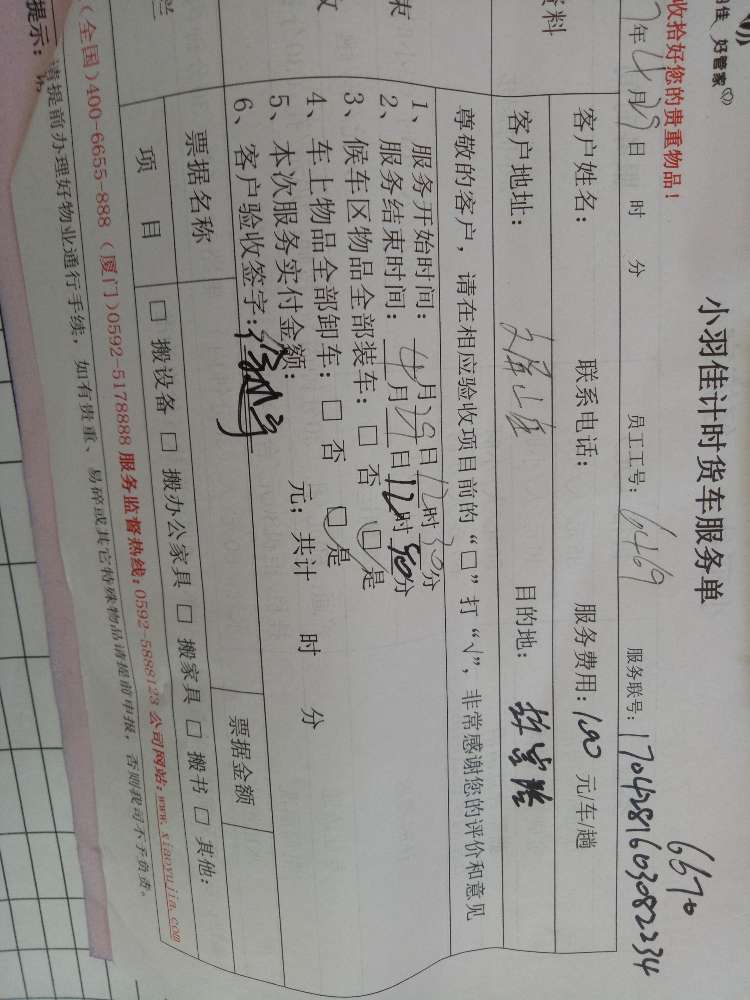 好管家
小羽佳计时货车服务单
6670
收拾好您的贵重物品!
年4月29日 时 分 员工工号: 6469 服务联号: 1704281603082234
客户姓名: 联系电话: 服务费用: 100 元/车/趟
客户地址: 目的地:
尊敬的客户, 请在相应验收项目前的“□”打“√”, 非常感谢您的评价和意见
1、服务开始时间: 4月29日12时30分
2、服务结束时间: 月 日12时40分
3、候车区物品全部装车: □ 否 □ 是
4、车上物品全部卸车: □ 否 □ 是
5、本次服务实付金额: 元; 共计 时 分
6、客户验收签字:
票据名称 票据金额
项 目 □ 搬设备 □ 搬办公家具 □ 搬家具 □ 搬书 □ 其他:
(全国)400-6655-888 (厦门)0592-5178888 服务监督热线: 0592-5888123 公司网站: www.xiaoyujia.com
提示: 请提前办理好物业通行手续, 如有贵重、易碎或其它特殊物品请提前申报, 否则我司不予负责。